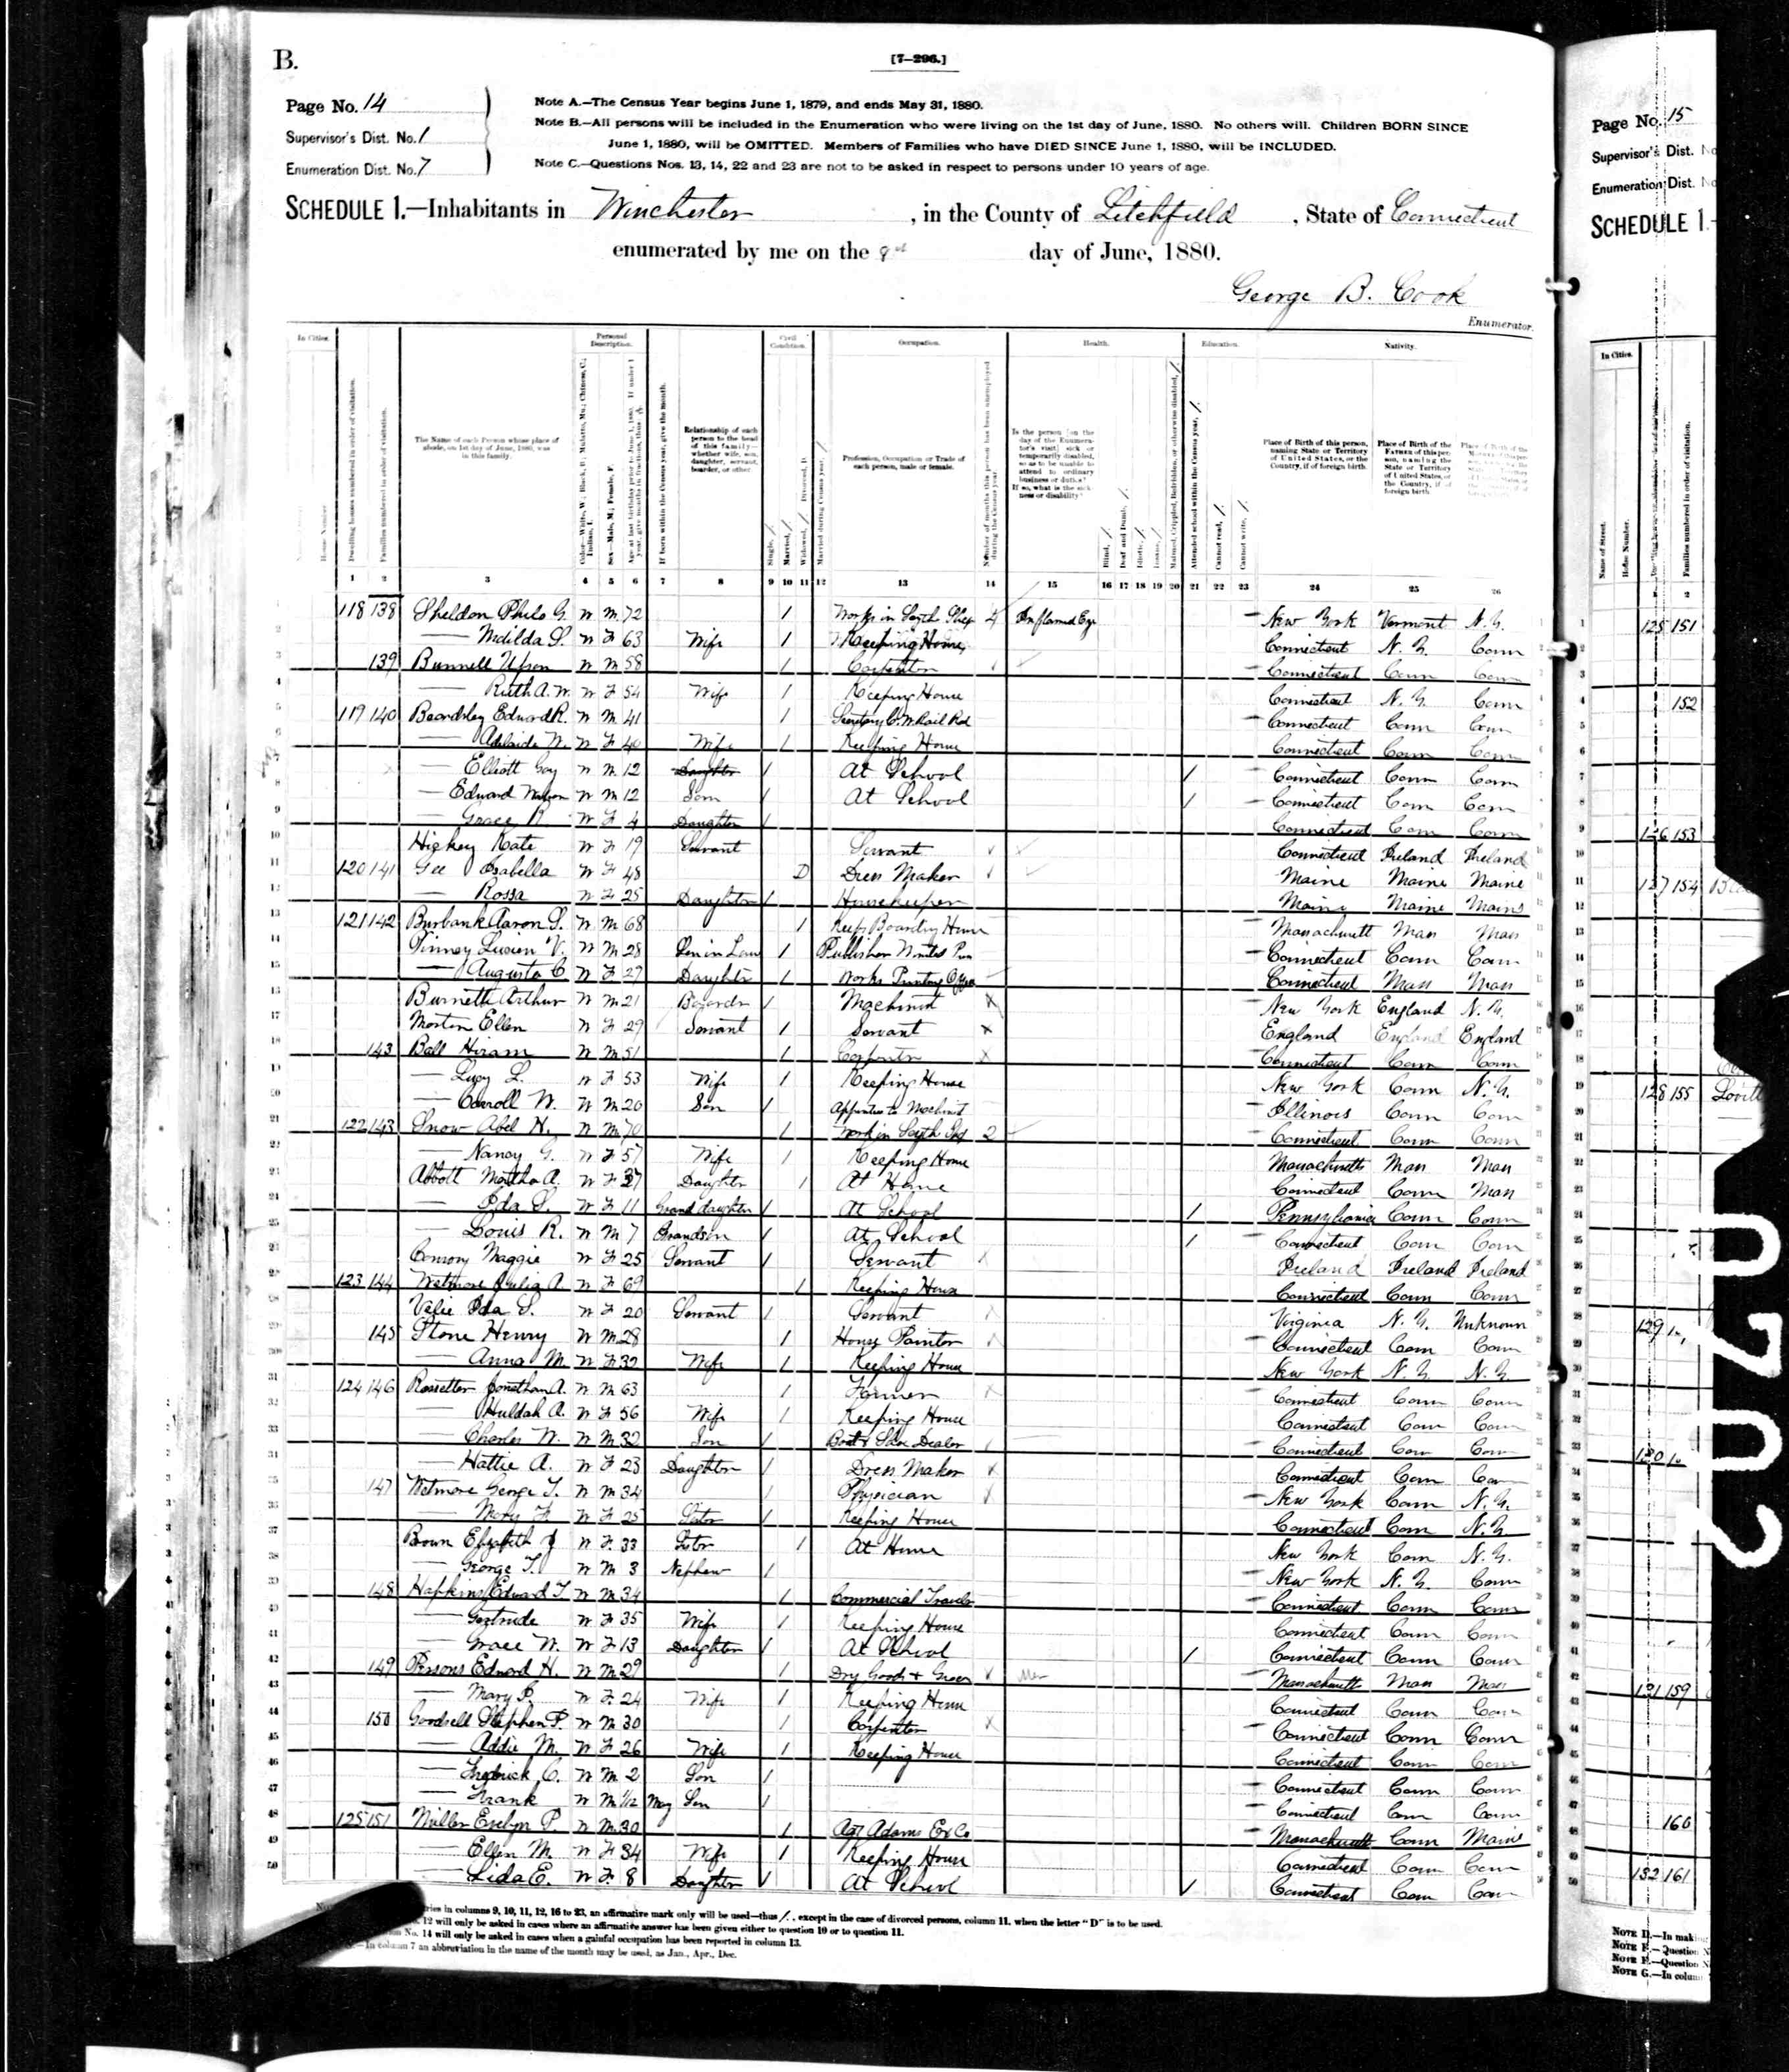 B.
[7-296.]
Page No. 14
Supervisor's Dist. No. 1
Enumeration Dist. No. 7
Note A.—The Census Year begins June 1, 1879, and ends May 31, 1880.
Note B.—All persons will be included in the Enumeration who were living on the 1st day of June, 1880. No others will. Children BORN SINCE
June 1, 1880, will be OMITTED. Members of Families who have DIED SINCE June 1, 1880, will be INCLUDED.
Note C.—Questions Nos. 13, 14, 22 and 23 are not to be asked in respect to persons under 10 years of age.
SCHEDULE 1.—Inhabitants in Winchester, in the County of Litchfield, State of Connecticut
enumerated by me on the day of June, 1880.
George B. Cook
Enumerator.
In Cities. Personal Description. Civil Condition. Occupation. Health. Education. Nativity.
The Name of each Person whose place of abode, on 1st day of June, 1880, was in this family.
Relationship of each person to the head of this family—whether wife, son, daughter, servant, boarder, or other.
Profession, Occupation or Trade of each person, male or female.
Place of Birth of this person, naming State or Territory of United States, or the Country, if of foreign birth.
1 2 3 4 5 6 7 8 9 10 11 12 13 14 15 16 17 18 19 20 21 22 23 24 25 26
1 118 138 Sheldon Philo G. W M 72 1 Works in Scythe Shop 4 Inflamed Eye New York Vermont N.Y.
2 — Matilda S. W F 63 Wife 1 Keeping House Connecticut N.Y. Conn
3 139 Bunnell Upson W M 58 1 Carpenter Connecticut Conn Conn
4 — Ruth A. W. W F 54 Wife 1 Keeping House Connecticut N.Y. Conn
5 119 140 Beardsley Edward R. W M 41 1 Secretary C. W. Rail Rd Connecticut Conn Conn
6 — Adelaide W. W F 40 Wife 1 Keeping House Connecticut Conn Conn
7 — Elliott Gay W M 12 Daughter / At School / Connecticut Conn Conn
8 — Edward Watson W M 12 Son / At School / Connecticut Conn Conn
9 — Grace R. W F 4 Daughter / Connecticut Conn Conn
10 Hickey Kate W F 19 Servant Servant Connecticut Ireland Ireland
11 120 141 Gee Isabella W F 48 D Dress Maker Maine Maine Maine
12 — Rossa W F 25 Daughter / Housekeeper Maine Maine Maine
13 121 142 Burbank Aaron S. W M 68 1 Keeps Boarding House Massachusetts Mass Mass
14 Pinney Lucien V. W M 28 Son in Law 1 Publisher Connecticut Conn Conn
15 — Augusta C W F 27 Daughter 1 Works Printing Office Connecticut Mass Mass
16 Burnett Arthur W M 21 Boarder / Machinist X New York England N.Y.
17 Morton Ellen W F 29 Servant 1 Servant X England England England
18 143 Ball Hiram W M 51 1 Carpenter X Connecticut Conn Conn
19 — Lucy L. W F 53 Wife 1 Keeping House New York Conn N.Y.
20 — Carroll W. W M 20 Son / Apprentice to Machinist Illinois Conn Conn
21 122 143 Snow Abel H. W M 70 1 Work in Scythe Shop 2 Connecticut Conn Conn
22 — Nancy G. W F 57 Wife 1 Keeping House Massachusetts Mass Mass
23 Abbott Martha A. W F 37 Daughter 1 At Home Connecticut Conn Mass
24 — Ida S. W F 11 Grand daughter / At School / Pennsylvania Conn Conn
25 — Louis R. W M 7 Grandson / At School / Connecticut Conn Conn
26 Conroy Maggie W F 25 Servant / Servant Ireland Ireland Ireland
27 123 144 Wetmore Julia A. W F 69 1 Keeping House Connecticut Conn Conn
28 Ida S. W F 20 Servant / Servant Virginia N.Y. Unknown
29 145 Stone Henry W M 28 1 House Painter Connecticut Conn Conn
30 — Anna M. W F 32 Wife 1 Keeping House New York N.Y. N.Y.
31 124 146 Rossetter Jonathan A. W M 63 1 Farmer Connecticut Conn Conn
32 — Huldah A. W F 56 Wife 1 Keeping House Connecticut Conn Conn
33 — Charles W. W M 32 Son / Boot & Shoe Dealer Connecticut Conn Conn
34 — Hattie A. W F 23 Daughter / Dress Maker X Connecticut Conn Conn
35 147 Wetmore George T. W M 34 / Physician X New York Conn N.Y.
36 — Mary F. W F 25 Sister / Keeping House Connecticut Conn N.Y.
37 Brown Elizabeth W F 33 Sister 1 At Home New York Conn N.Y.
38 — George T. W M 3 Nephew / New York N.Y. Conn
39 148 Hopkins Edward T. W M 34 1 Commercial Traveler Connecticut Conn Conn
40 — Gertrude W F 35 Wife 1 Keeping House Connecticut Conn Conn
41 — Grace W. W F 13 Daughter / At School / Connecticut Conn Conn
42 149 Persons Edward H. W M 29 1 Dry Goods & Grocer Massachusetts Mass Mass
43 — Mary P. W F 24 Wife 1 Keeping House Connecticut Conn Conn
44 150 Goodsell Stephen P. W M 30 1 Carpenter X Connecticut Conn Conn
45 — Addie M. W F 26 Wife 1 Keeping House Connecticut Conn Conn
46 — Fredrick C. W M 2 Son / Connecticut Conn Conn
47 — Frank W M 1/12 May Son / Connecticut Conn Conn
48 125 151 Miller Evelyn P W M 30 1 Agt Adams Ex Co Massachusetts Conn Maine
49 — Ellen M. W F 34 Wife 1 Keeping House Connecticut Conn Conn
50 — Lida E. W F 8 Daughter / At School / Connecticut Conn Conn
ries in columns 9, 10, 11, 12, 16 to 23, an affirmative mark only will be used—thus /, except in the case of divorced persons, column 11, when the letter "D" is to be used.
12 will only be asked in cases where an affirmative answer has been given either to question 10 or to question 11.
No. 14 will only be asked in cases when a gainful occupation has been reported in column 13.
In column 7 an abbreviation in the name of the month may be used, as Jan., Apr., Dec.
Page No. 15
Supervisor's Dist. No
Enumeration Dist. No
SCHEDULE 1.—
In Cities.
125 151
152
126 153
127 154
128 155 Lovitt
129
130
131 159
160
132 161
0202
NOTE D.—In mak
NOTE E.—Question N
NOTE F.—Question N
NOTE G.—In colum